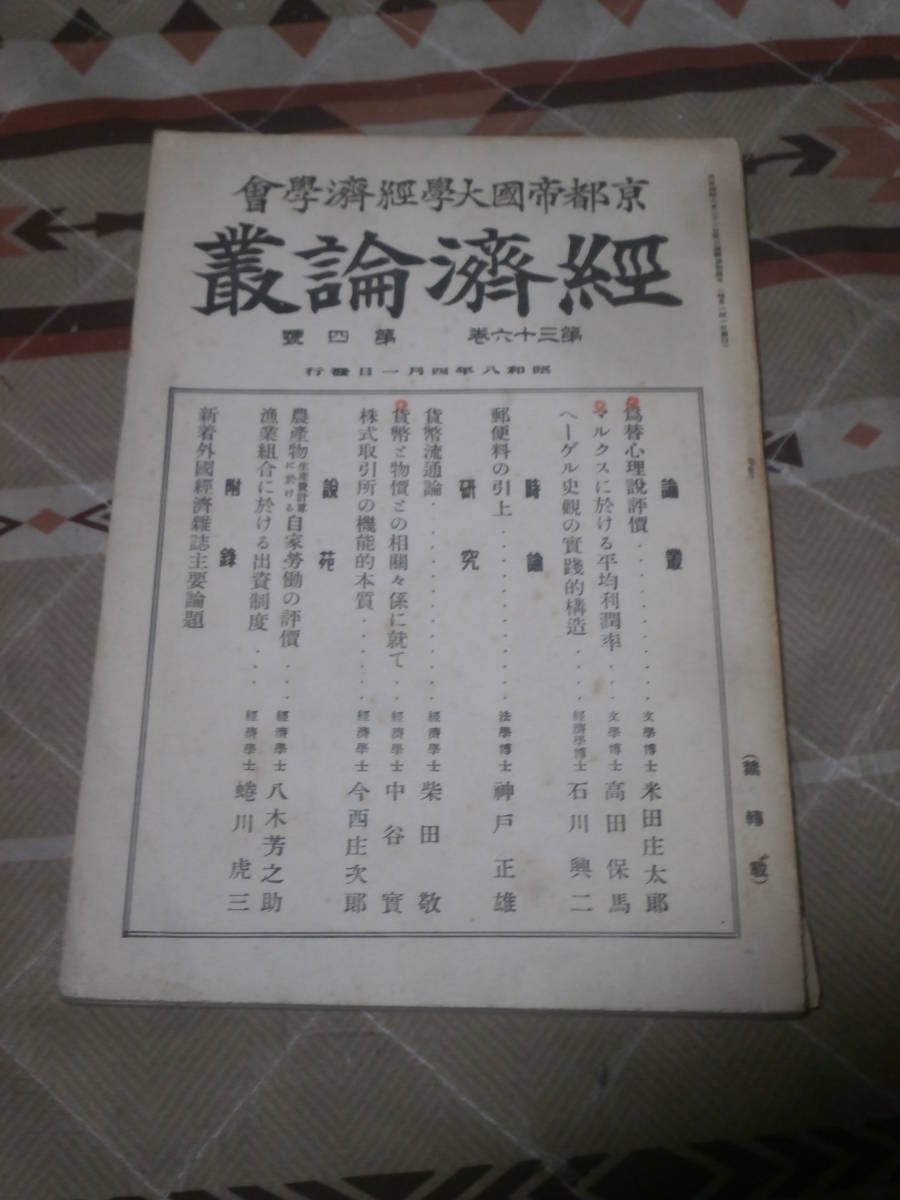 京都帝國大學經濟學會
經濟論叢
第三十六卷 第四號
昭和八年四月一日發行
論叢
爲替心理說評價 文學博士 米田庄太郎
マルクスに於ける平均利潤率 文學博士 高田保馬
ヘーゲル史觀の實踐的構造 經濟學博士 石川興二
時論
郵便料の引上 法學博士 神戶正雄
硏究
貨幣流通論 經濟學士 柴田敬
貨幣と物價との相關々係に就て 經濟學士 中谷實
株式取引所の機能的本質 經濟學士 今西庄次郞
說苑
農產物生產費計算に於ける自家勞働の評價 經濟學士 八木芳之助
漁業組合に於ける出資制度 經濟學士 蜷川虎三
附錄
新着外國經濟雜誌主要論題
(禁轉載)